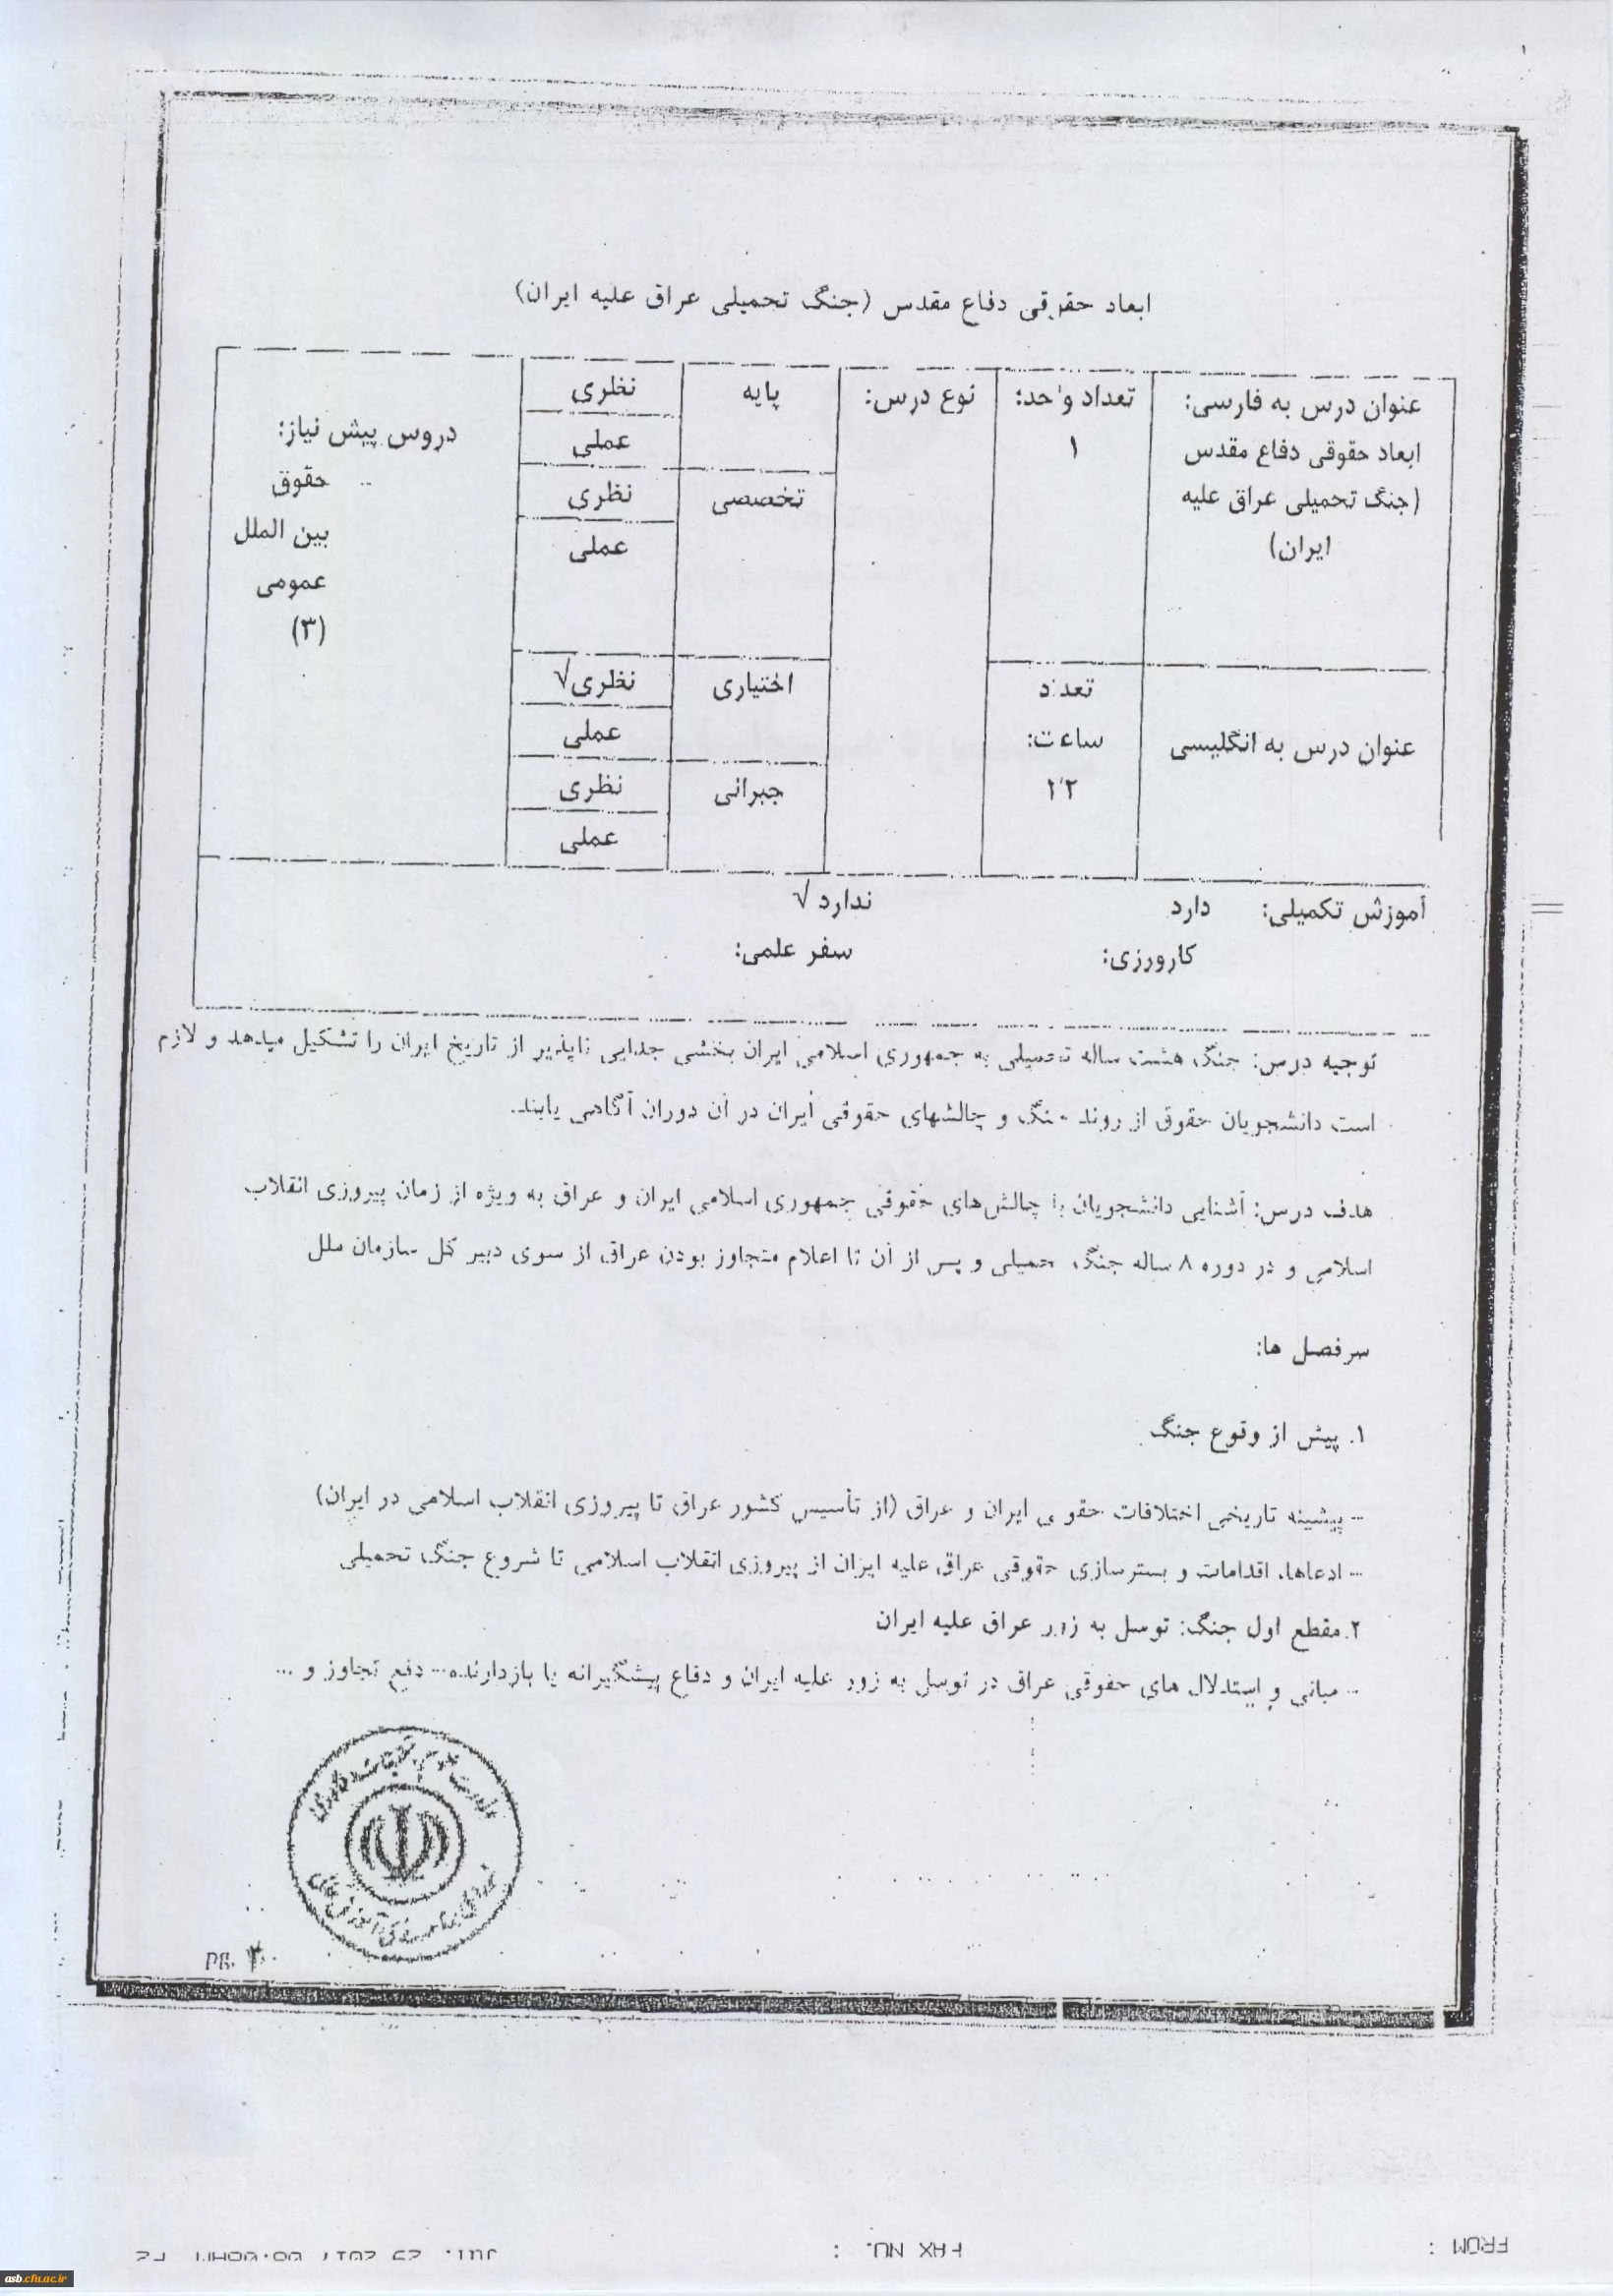 ابعاد حقوقی دفاع مقدس (جنگ تحمیلی عراق علیه ایران)
عنوان درس به فارسی:
ابعاد حقوقی دفاع مقدس
(جنگ تحمیلی عراق علیه
ایران)
عنوان درس به انگلیسی
تعداد واحد:
۱
تعداد
ساعت:
نوع درس:
پایه
نظری
عملی
تخصصی
نظری
عملی
اختیاری
نظری√
عملی
جبرانی
نظری
عملی
دروس پیش نیاز:
حقوق
بین الملل
عمومی
(۳)
آموزش تکمیلی: دارد ندارد √
کارورزی: سفر علمی:
توجیه درس: جنگ هشت ساله تحمیلی به جمهوری اسلامی ایران بخشی جدایی ناپذیر از تاریخ ایران را تشکیل میدهد و لازم
است دانشجویان حقوق از روند جنگ و چالشهای حقوقی ایران در آن دوران آگاهی یابند.
هدف درس: آشنایی دانشجویان با چالش‌های حقوقی جمهوری اسلامی ایران و عراق به ویژه از زمان پیروزی انقلاب
اسلامی و در دوره ۸ ساله جنگ تحمیلی و پس از آن تا اعلام متجاوز بودن عراق از سوی دبیر کل سازمان ملل
سرفصل ها:
۱. پیش از وقوع جنگ
- پیشینه تاریخی اختلافات حقوقی ایران و عراق (از تأسیس کشور عراق تا پیروزی انقلاب اسلامی در ایران)
- ادعاها، اقدامات و بسترسازی حقوقی عراق علیه ایران از پیروزی انقلاب اسلامی تا شروع جنگ تحمیلی
۲. مقطع اول جنگ: توسل به زور عراق علیه ایران
- مبانی و استدلال های حقوقی عراق در توسل به زور علیه ایران و دفاع پیشگیرانه یا بازدارنده- دفع تجاوز و ...
وزارت علوم، تحقیقات و فناوری
شورای برنامه ریزی آموزش عالی
FROM :
FAX NO. :
asb.cfu.ac.ir